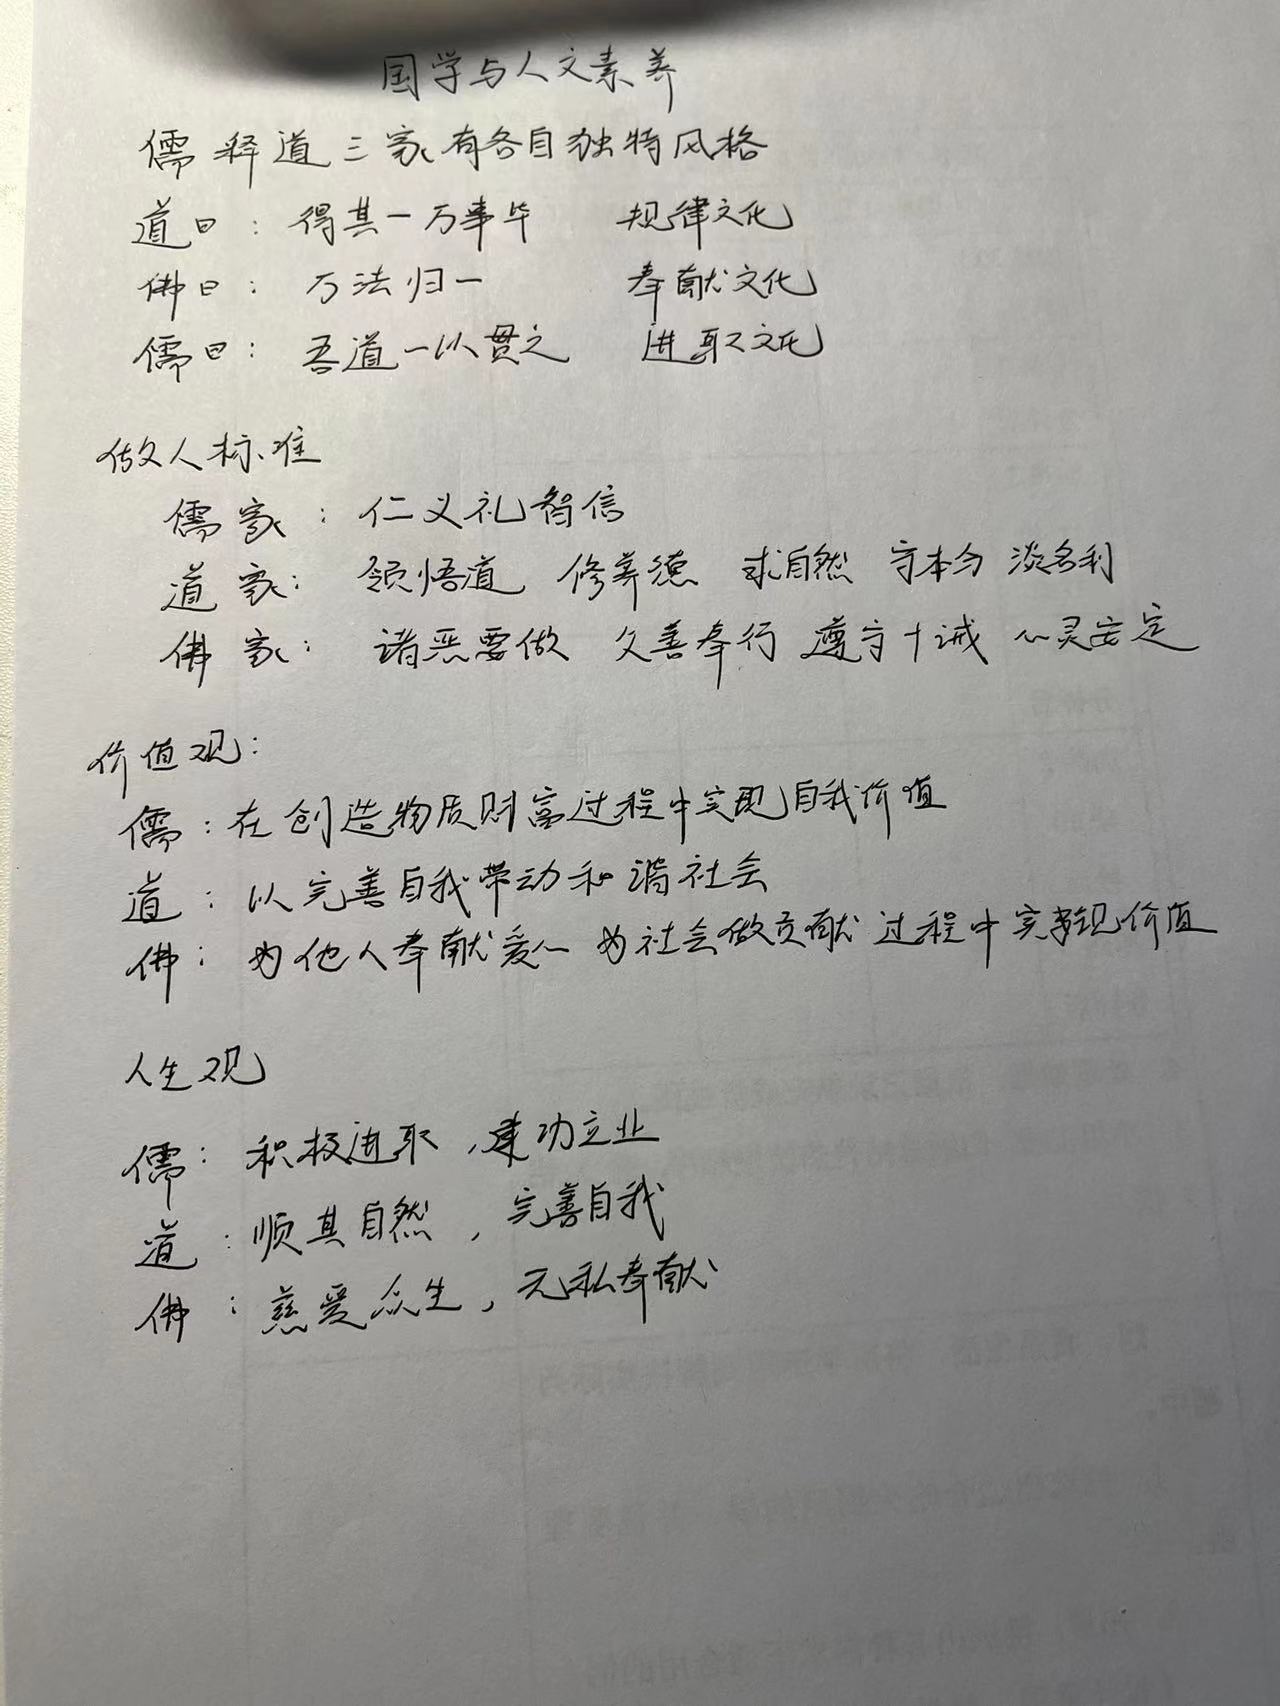 国学与人文素养
儒释道三家有各自独特风格
道曰：得其一万事毕 规律文化
佛曰：万法归一 奉献文化
儒曰：吾道一以贯之 进取文化
做人标准
儒家：仁义礼智信
道家：领悟道 修养德 求自然 守本分 淡名利
佛家：诸恶要做 久善奉行 遵守十诫 心灵安定
价值观：
儒：在创造物质财富过程中实现自我价值
道：以完善自我带动和谐社会
佛：为他人奉献爱心 为社会做贡献过程中实现价值
人生观
儒：积极进取，建功立业
道：顺其自然，完善自我
佛：慈爱众生，无私奉献